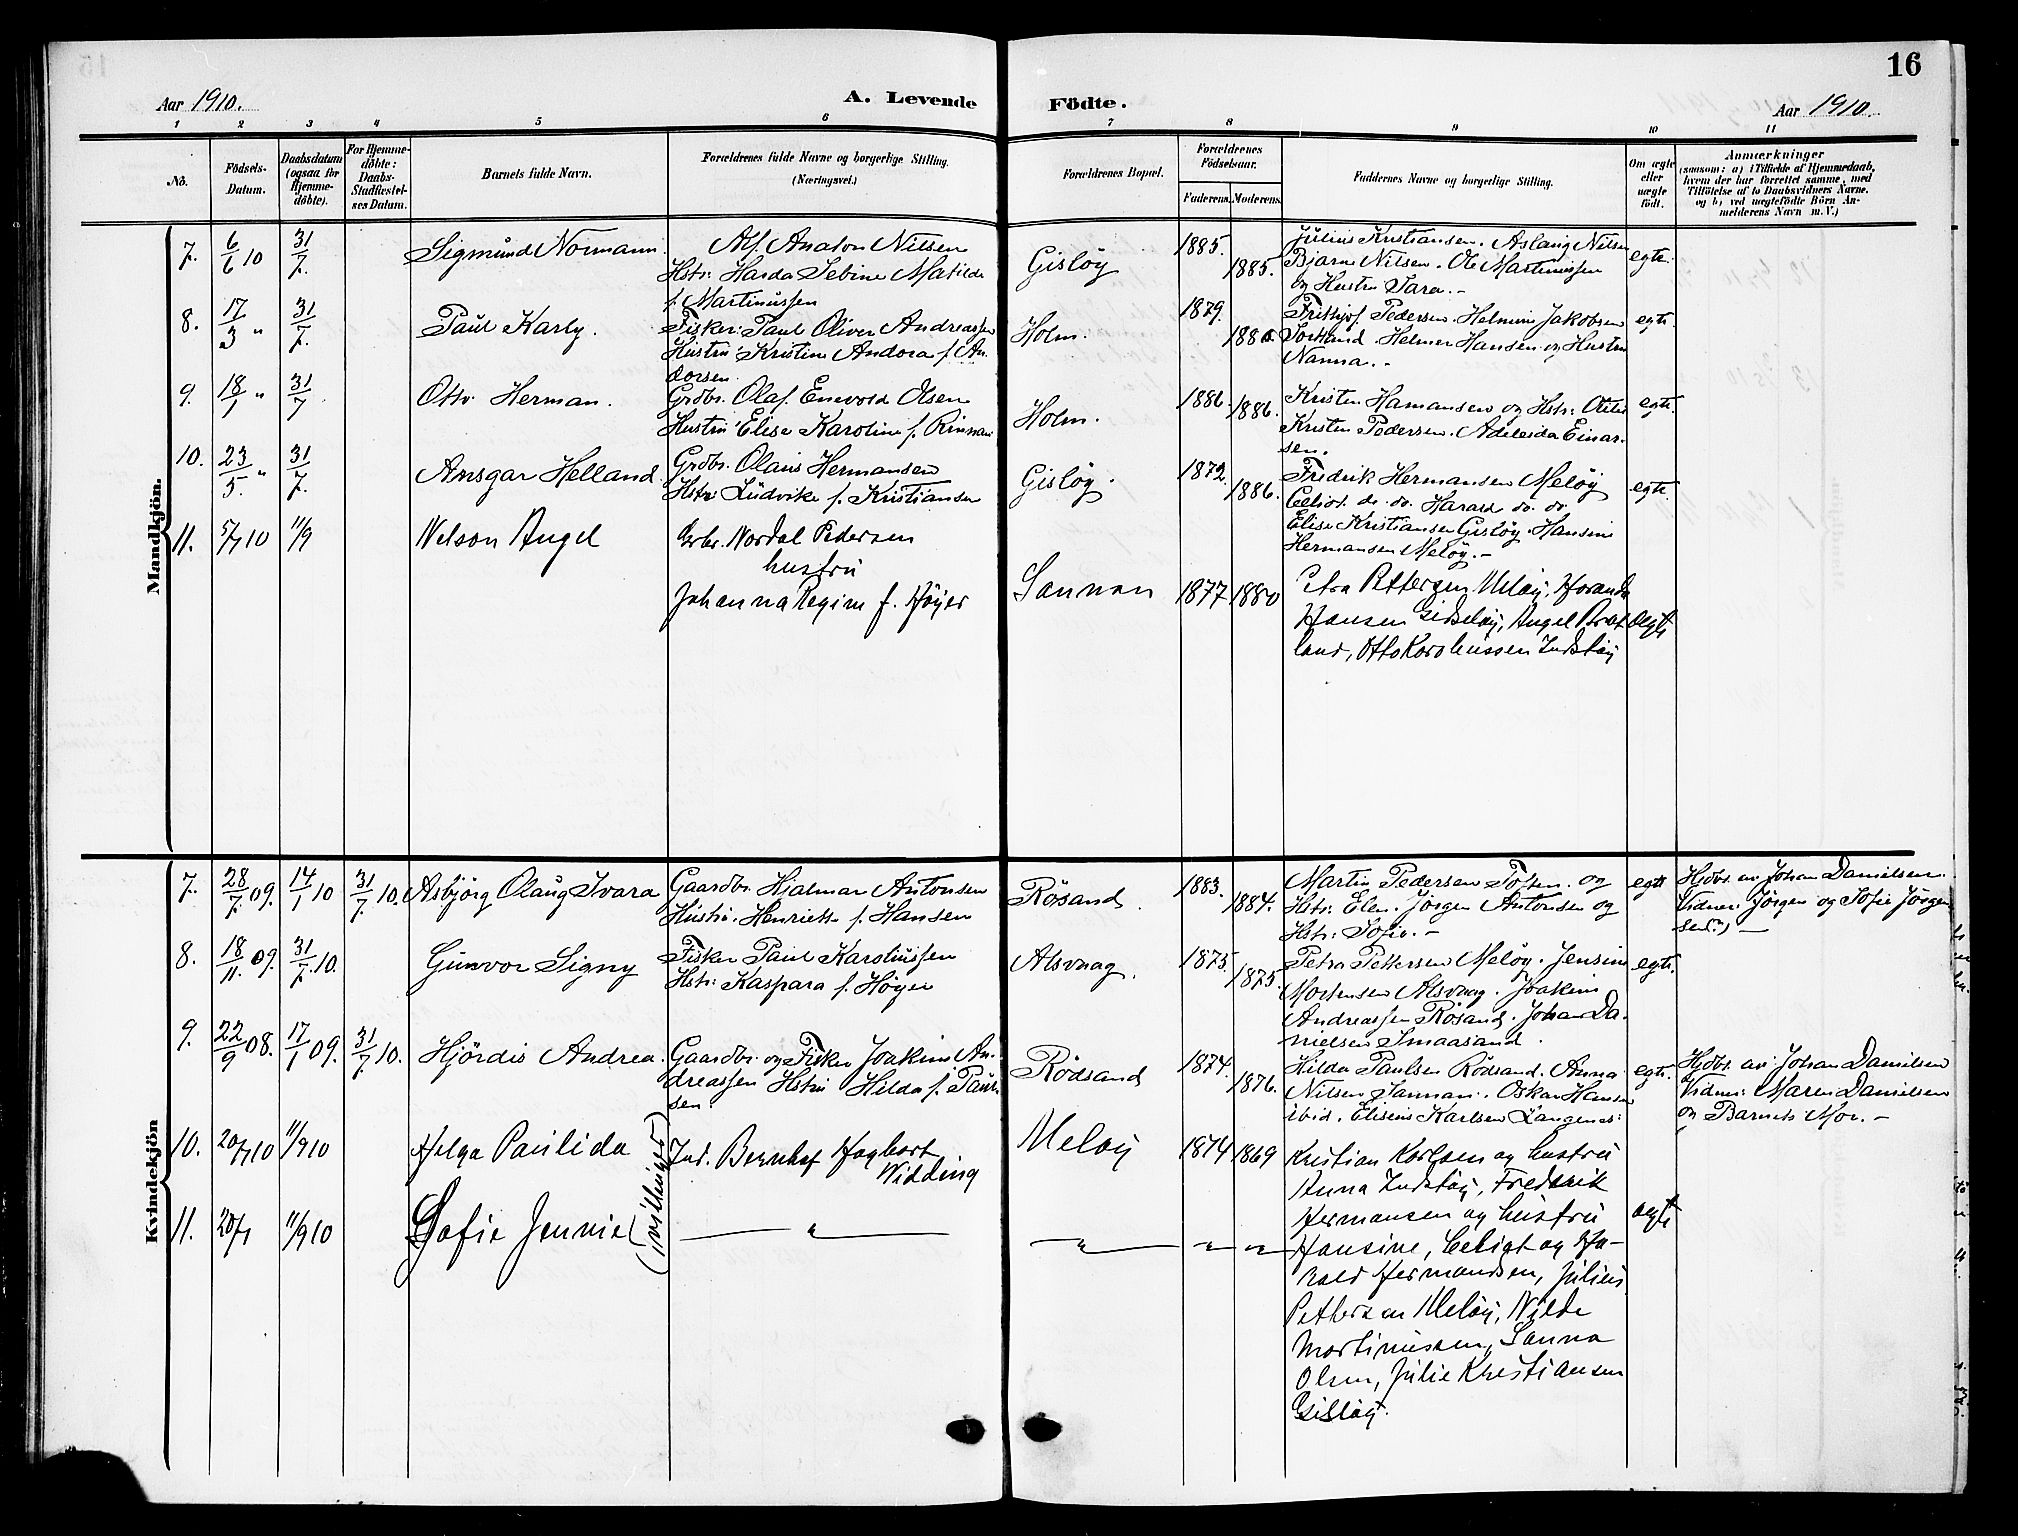 16
Aar 1910.
A. Levende Födte.
Aar 1910.
1 2 3 4 5 6 7 8 9 10 11
No.
Födsels-Datum.
Daabsdatum (ogsaa for Hjemme-döbte).
For Hjemme-döbte: Daabs-Stadfæstel-ses Datum.
Barnets fulde Navn.
Forældrenes fulde Navne og borgerlige Stilling.
(Næringsvei.)
Forældrenes Bopæl.
Forældrenes Födselsaar.
Faderens. Moderens.
Faddernes Navne og borgerlige Stilling.
Om ægte eller uægte födt.
Anmærkninger
(saasom: a) i Tilfælde af Hjemmedaab, hvem der har forrettet samme, med Tilföielse af to Daabsvidners Navne, og b) ved uægtefödte Börn Anmelderens Navn m. V.)
Mandkjön.
7. 6/6 10 31/7. Sigmund Normann. Alf Anaton Nilsen
Hstr. Harda Sebine Matilde
f. Martinussen
Gisløy 1885. 1885.
Julius Kristiansen. Aslaug Nilsen
Bjarne Nilsen. Ole Martinussen
og Hustru Sara.-
egte.
8. 17/3 " 31/7. Paul Karly. Fisker: Paul Oliver Andreassen
Hustru: Kristine Andora f. An-
dorsen.
Holm. 1879. 1880.
Frithjof Pedersen. Helmine Jakobsen
Sortland. Helmer Hansen og Hustru
Nanna.-
egte.
9. 18/1 " 31/7 Otto Herman. Grdbr. Olaf Enevold Olsen
Hustru: Elise Karoline f.
Holm. 1886. 1886.
Kristen Hamansen og Hstr: Otilie
Kristen Pedersen. Adeleida Einar-
sen.
egte.
10. 23/5. " 31/7. Ansgar Helland. Grdbr. Olaus Hermansen
Hstr Ludvike f. Kristiansen
Gisløy. 1872. 1886.
Fredrik Hermansen Meløy
Celiot do. do. Harald do. do.
Elise Kristiansen Gisløy. Hansine
Hermansen Meløy.-
egte.
11. 5/7 10 11/9 Nelson Angel Nordal Pedersen
hustru
Johanna Regine f. Høyer
Sannan 1877 1880
Petra Pettersen Meløy,
Hansen Gisløy, Angel Brat
land, Otto Korohussen Indstøy
ægte
Kvindekjön
7. 28/7. 09. 14/1 10 31/7. 10. Asbjörg Olaug Ivara Gaardbr. Hjalmar Antonsen
Hustru. Henriette f. Hansen
Rösand. 1883. 1884.
Martin Pedersen Toften. og
Hstr: Elen. Jörgen Antonsen og
Hstr: Sofie.-
egte
Hjdbt. av: Johan Danielsen.
Vidner: Jörgen og Sofie Jörgen
sen.)-
8. 18/11. 09. 31/7. 10. Gunvor Signy Fisker Paul Karoliussen
Hstr: Kaspara f. Høyer
Alsvaag. 1875. 1875.
Petra Pettersen Meløy. Jensine
Mortensen Alsvaag. Joakim
Andreassen Rösand. Johan Da-
nielsen Smaasand.
egte.
9. 22/9 08. 17/1 09. 31/7 10. Hjördis Andrea. Gaardbr. og Fisker Joakim An-
dreassen Hstru Hilda f. Paul-
sen.
Rödsand 1874. 1876.
Hilda Paulsen Rödsand. Anna
Nilsen Sannan. Oskar Hansen
ibid. Eliseus Karlsen Langenes:
egte.
Hjdbt. av: Johan Danielsen
Vidner: Maren Danielsen
og Barnets Mor.-
10. 20/7 10 11/9 10 Helga Paulida Ind. Bernhof Hagbart
Widding
Meløy 1874 1869
Kristian Karlsen og hustru
Anna Indstøy, Fredrik
Hermansen og hustru
Hansine, Celiot og Ha-
rald Hermandsen, Julius
Pettersen Meløy, Nilde
Martinussen, Sanna
Olsen, Julie Kristiansen
Gisløy.
11. 20/7 11/9 10 Sofie Jennie (tvillinger) — " — — " — — " — — " —
ægte